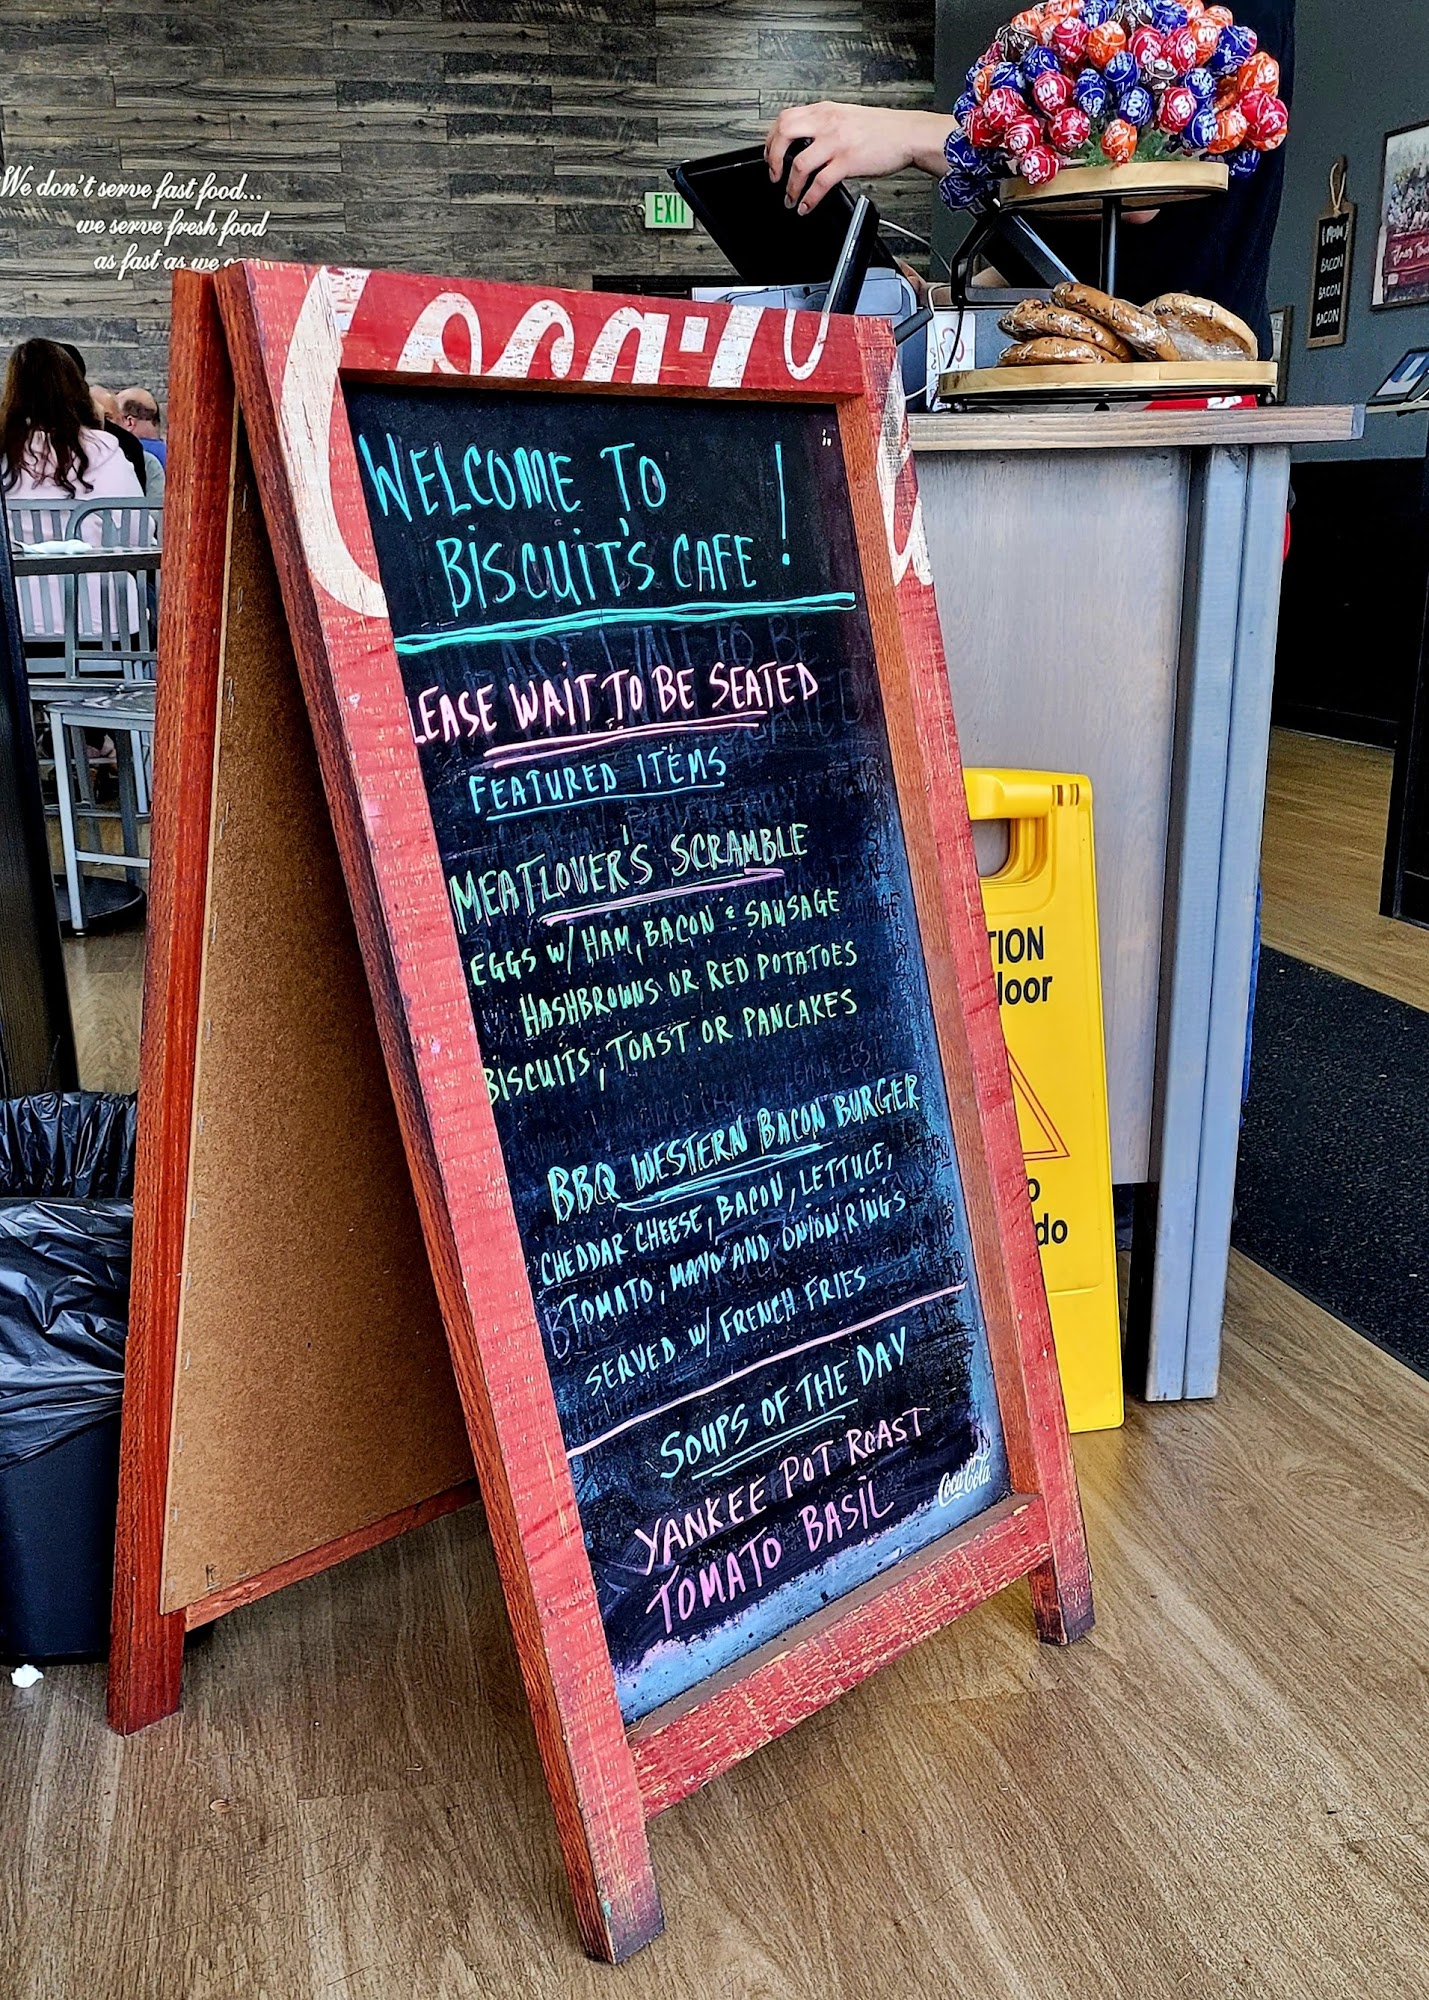 We don't serve fast food...
we serve fresh food
as fast as we can
EXIT
BACON
BACON
BACON
Coca-Cola
WELCOME TO
BISCUIT'S CAFE!
LEASE WAIT TO BE SEATED
FEATURED ITEMS
MEATLOVER'S SCRAMBLE
EGGS W/ HAM, BACON & SAUSAGE
HASHBROWNS OR RED POTATOES
BISCUITS, TOAST OR PANCAKES
BBQ WESTERN BACON BURGER
CHEDDAR CHEESE, BACON, LETTUCE,
TOMATO, MAYO AND ONION RINGS
SERVED W/ FRENCH FRIES
SOUPS OF THE DAY
YANKEE POT ROAST
TOMATO BASIL
Coca-Cola
TION
loor
o
do